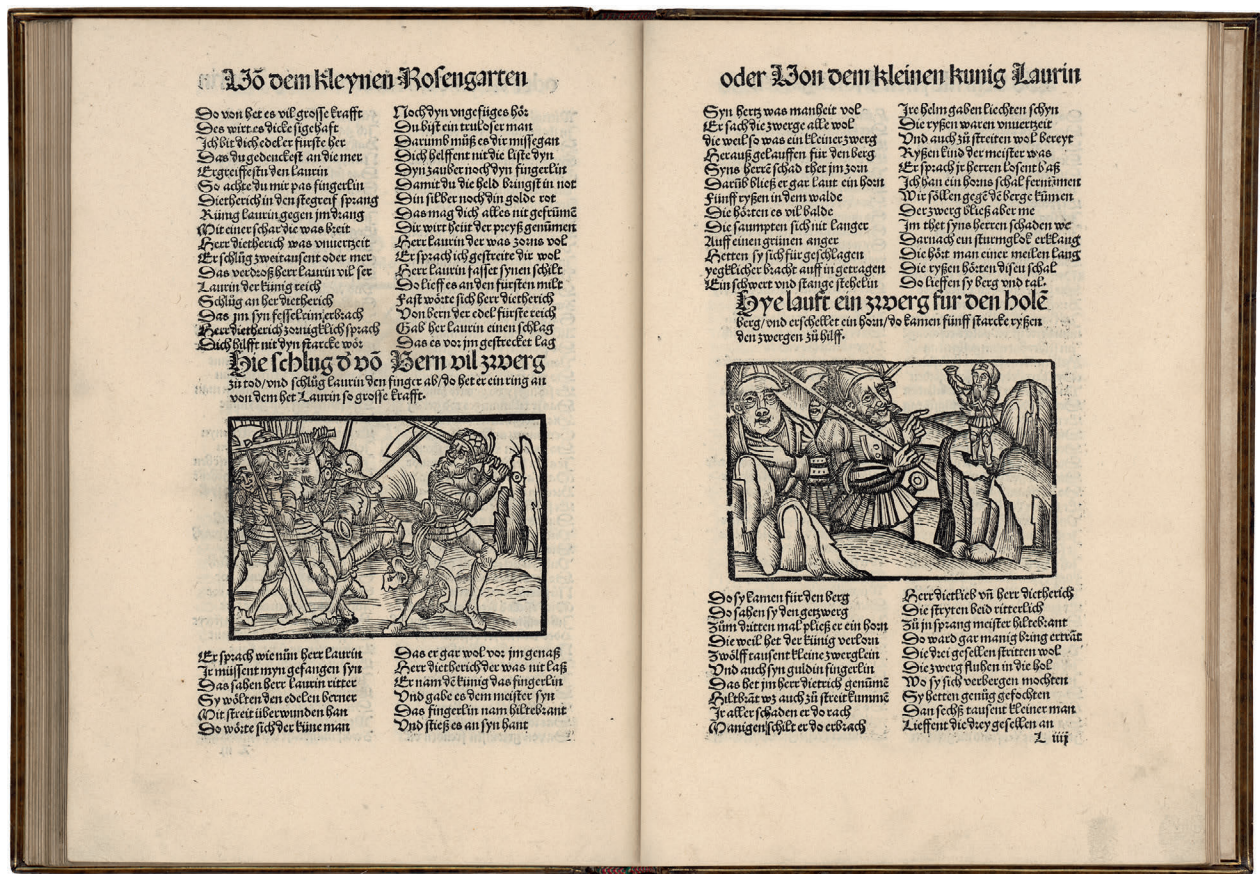 Võ dem kleynen Rosengarten
Do von het es vil grosse krafft
Des wirt es dicke sigehaft
Ich bit dich edeler fürste her
Das du gedenckest an die mer
Ergreiffestu den laurin
So achte du mir pas fingerlin
Dietherich in den stegreif sprang
Künig laurin gegen jm drang
Mit einer schar die was breit
Herr dietherich was vnuertzeit
Er schlůg zweitausent oder mer
Das verdroß herr laurin vil ser
Laurin der künig reich
Schlůg an her dietherich
Das jm syn fessel eim erbrach
Herr dietherich zornigklich sprach
Dich hilfft nit dyn starcke wör
Noch dyn vngefüges hör
Du bist ein truloser man
Darumb můß es dir missegan
Dich helffent nit die liste dyn
Dyn zauber noch dyn fingerlin
Damit du die held bringst in not
Din silber noch din golde rot
Das mag dich alles nit gefrümē
Dir wirt heüt der preyß genümen
Herr laurin der was zorns vol
Er sprach ich gestreite dir wol
Herr laurin fasset synen schilt
Do lieff es an den fürsten milt
Fast wörte sich herr dietherich
Von bern der edel fürste rich
Gab her laurin einen schlag
Das es vor jm gestrecket lag
Hie schlug d võ Bern vil zwerg
zů tod/vnd schlůg laurin den finger ab/do het er ein ring an
von dem het Laurin so grosse krafft.
Er sprach wie nün herr laurin
Ir müssent myn gefangen syn
Das sahen herr laurin ritter
Sy wölten den edelen berner
Mit streit überwunden han
Do wörte sich der küne man
Das er gar wol vor jm genaß
Herr dietherich der was nit laß
Er nam dē künig das fingerlin
Vnd gabe es dem meister syn
Das fingerlin nam hiltebrant
Vnd stieß es an syn hant
oder Von dem kleinen kunig Laurin
Syn hertz was manheit vol
Er sach die zwerge alle wol
die weil so was ein kleiner zwerg
Herauß gelauffen für den berg
Syns herrē schad thet jm zorn
Darüb bließ er gar laut ein horn
Fünff ryßen in dem walde
Die hörten es vil balde
Die saumpten sich nit langer
Auff einen grünen anger
Hetten sy sich für geschlagen
yegklicher bracht auff in getragen
Ein schwert vnd stange stehelin
Ire helm gaben liechten schyn
Die ryßen waren vnuertzeit
Vnd auch zů streiten wol bereyt
Ryßen kind der meister was
Er sprach jr herren losent baß
Ich han ein horns schal fernümen
Wir söllen gegē dē berge kümen
Der zwerg bließ aber me
Im thet syns herren schaden we
Darnach ein sturmglok erklang
Die hört man einer meilen lang
Die ryßen hörten disen schal
Do lieffen sy berg vnd tal.
Hye lauft ein zwerg für den holē
berg/vnd erschellet ein horn/do kamen fünff starcke ryßen
den zwergen zů hilff.
Do sy kamen für den berg
Do sahen sy den getzwerg
Zům dritten mal pließ er ein horn
Die weil het der künig verlorn
Zwölff tausent kleine zwerglein
Vnd auch syn guldin fingerlin
Das het jm herr dietrich genümē
Hiltbrāt wz auch zů streit kummē
Ir aller schaden er do rach
Manigen schilt er do erbrach
Herr dietlieb vñ herr dietherich
Die stryten beid ritterlich
Zů jn sprang meister hiltebrant
Do ward gar manig bring ertrāt
Die drei gesellen stritten wol
Die zwerg fluhen in die hol
Wo sy sich verbergen mochten
Sy hetten genůg gefochten
Dan sechß tausent kleiner man
Lieffent die drey gesellen an
L iiij